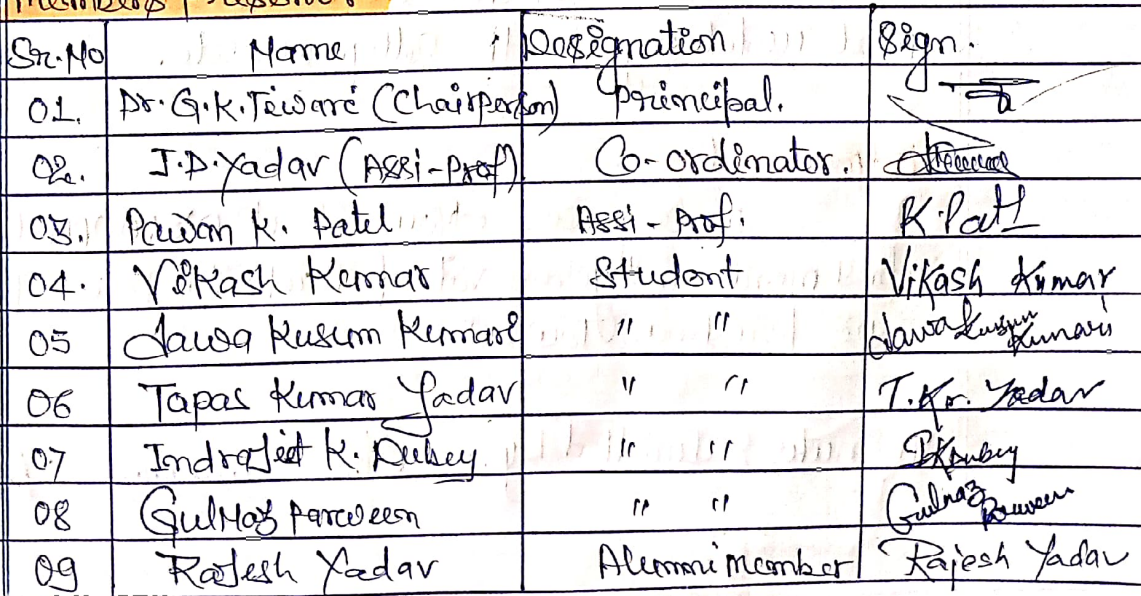 Members Present
Sr.No Name Designation Sign.
01. Dr. G.K. Tiwari (Chairperson) Principal.
02. J.D. Yadav (Assi-Prof) Co-ordinator.
03. Pawan K. Patel Assi-Prof. K. Patl
04. Vikash Kumar Student Vikash Kumar
05 Jawa Kusum Kumari " " Jawa Kusum Kumari
06 Tapas Kumar Yadav " " T. Kr. Yadav
07 Indrajeet K. Dubey " " IKDubey
08 Gulnaz Parween " " Gulnaz Parween
09 Rajesh Yadav Alumni member Rajesh Yadav